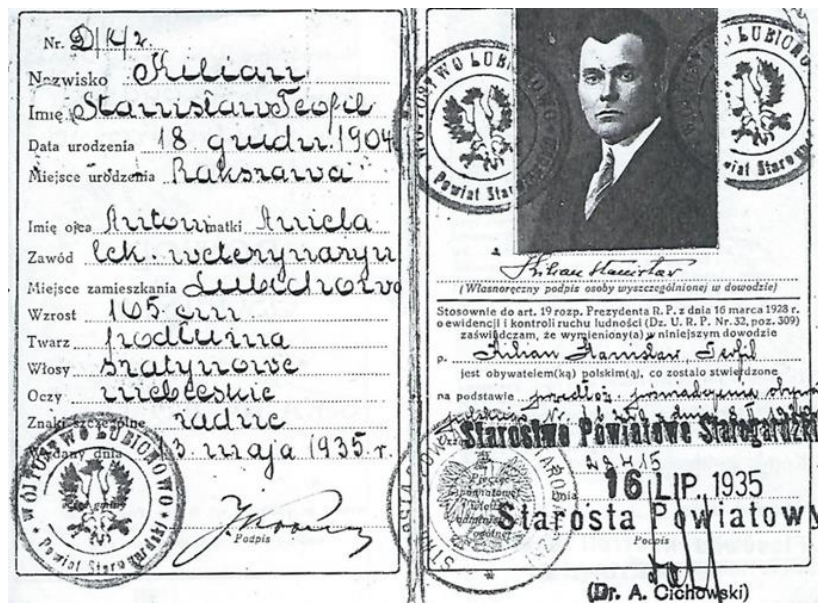 Nr. D/4/2.
Nazwisko Kilian
Imię Stanisław Teofil
Data urodzenia 18 grudn. 1904
Miejsce urodzenia Rakszawa
Imię ojca Antoni matki Aniela
Zawód lek. weterynaryi
Miejsce zamieszkania Lubichowo
Wzrost 165 cm
Twarz podłużna
Włosy szatynowe
Oczy niebieskie
Znaki szczególne żadne
Wydany dnia 3. maja 1935 r.
WÓJTOSTWO LUBICHOWO
Powiat Starogardzki
Podpis
WÓJTOSTWO LUBICHOWO
Powiat Starogardzki
Kilian Stanisław
(Własnoręczny podpis osoby wyszczególnionej w dowodzie)
Stosownie do art. 19 rozp. Prezydenta R. P. z dnia 16 marca 1928 r.
o ewidencji i kontroli ruchu ludności (Dz. U. R. P. Nr. 32, poz. 309)
zaświadczam, że wymieniony(a) w niniejszym dowodzie
p. Kilian Stanisław, Teofil
jest obywatelem(ką) polskim(ą), co zostało stwierdzone
na podstawie
Starostwo Powiatowe Starogardzki
Pieczęć
powiatowej
władzy
administr.
ogólnej
dnia 16 LIP. 1935
Starosta Powiatowy
Podpis
(Dr. A. Cichowski)